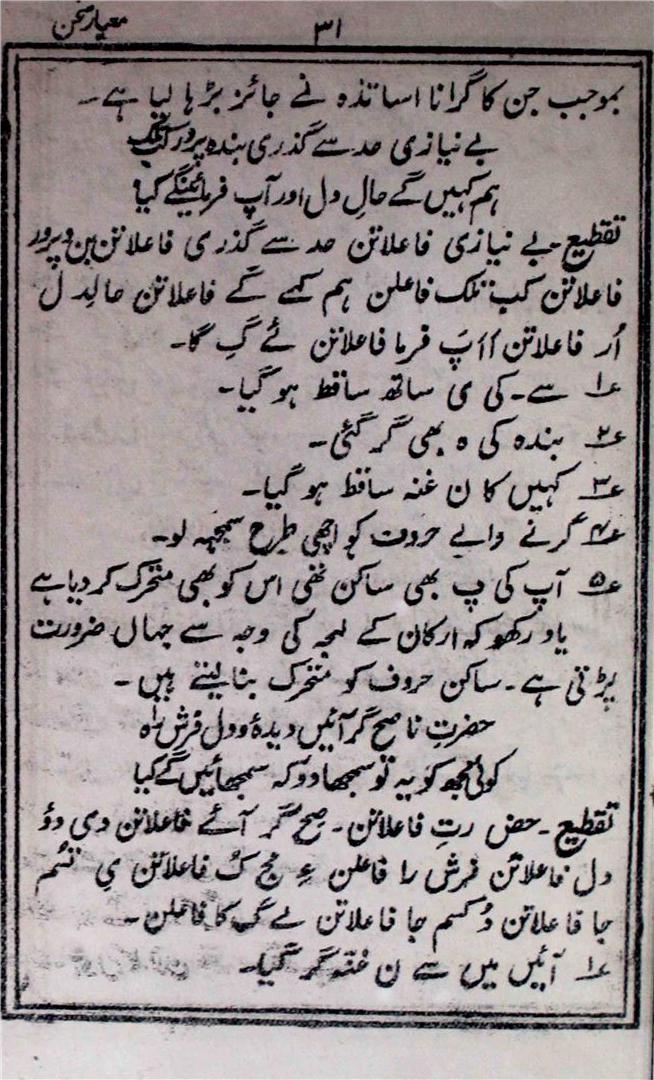 ۳۱ معیار سخن
بموجب جن کا گرانا اساتذہ نے جائز بڑہا لیا ہے۔
بے نیازی حد سے گذری بندہ پرور کب تلک
ہم کہیں گے حالِ دل اور آپ فرمائینگے کیا
تقطیع۔ بے نیازی فاعلاتن حد سے گذری فاعلاتن بن دپرور
فاعلاتن کب تلک فاعلن ہم کہے گے فاعلاتن حالِدل
اُر فاعلاتن ااَپَ فرما فاعلاتن ئے گِ گا۔
؏۱ سے۔ کی ی ساتھ ساقط ہو گیا۔
؏۲ بندہ کی ہ بھی گر گئی۔
؏۳ کہیں کا ن غنہ ساقط ہو گیا۔
؏۴ گرنے والے حروف کو اچھی طرح سمجھہ لو۔
؏۵ آپ کی پ بھی ساکن تھی اس کو بھی متحرک کر دیا ہے
یاد رکھو کہ ارکان کے لہجہ کی وجہ سے جہاں ضرورت
پڑتی ہے۔ ساکن حروف کو متحرک بنا لیتے ہیں۔
حضرتِ ناصح گر آئیں دیدۂ و دل فرش راہ
کوئی مجھ کو یہ تو سمجھا دو کہ سمجھائیں گے کیا
تقطیع۔ حض رتِ فاعلاتن۔ صح گر آئے فاعلاتن دی دۂ
دل فاعلاتن فرش را فاعلن ءِ مج کُ فاعلاتن یِ تسُم
جا فاعلاتن دُ کسم جا فاعلاتن لے گ کا فاعلن۔
؏۱ آئیں میں سے ن غنّہ گر گیا۔